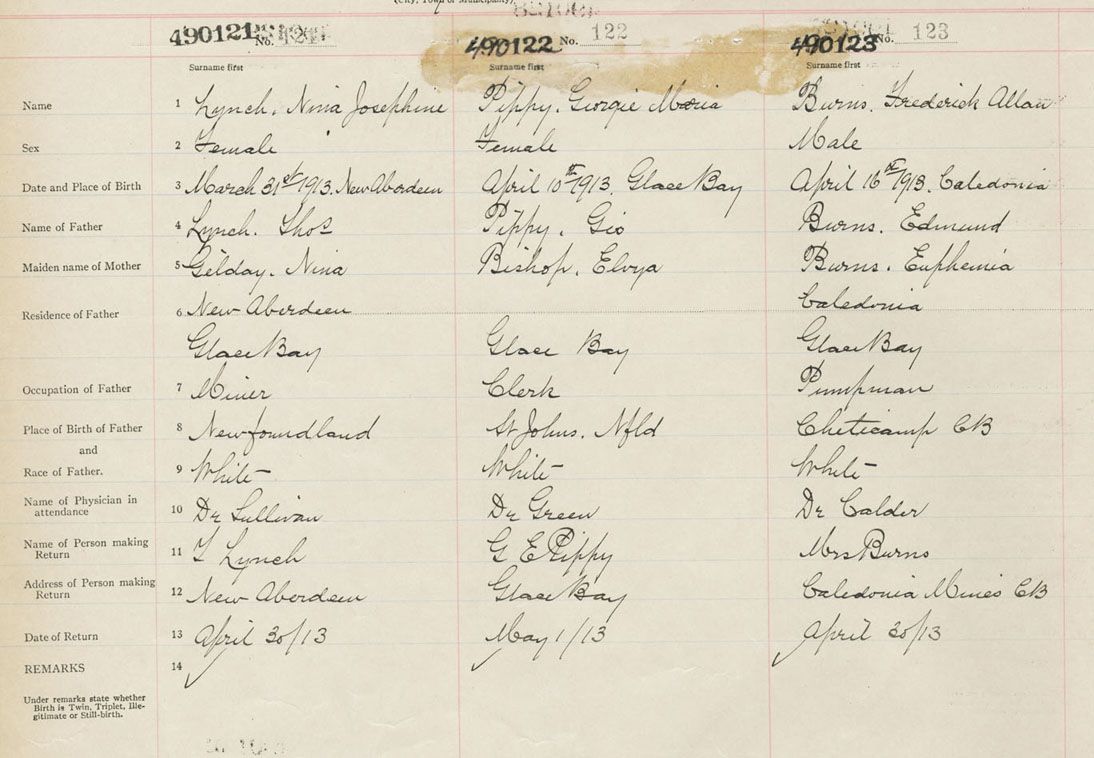 (City, Town or Municipality)
490121 No. 121 490122 No. 122 490123 No. 123
Surname first Surname first Surname first
Name 1 Lynch. Nina Josephine Pippy. Georgie Maria Burns. Frederick Allan
Sex 2 Female Female Male
Date and Place of Birth 3 March 31st 1913. New Aberdeen April 10th 1913. Glace Bay April 16th 1913. Caledonia
Name of Father 4 Lynch. Thos Pippy. Geo Burns. Edmund
Maiden name of Mother 5 Gilday. Nina Bishop. Burns. Euphemia
Residence of Father 6 New Aberdeen Caledonia
Glace Bay Glace Bay Glace Bay
Occupation of Father 7 Miner Clerk Pumpman
Place of Birth of Father 8 Newfoundland St Johns. Nfld Cheticamp CB
and
Race of Father. 9 White White White
Name of Physician in attendance 10 Dr Sullivan Dr Green Dr Calder
Name of Person making Return 11 T Lynch G E Pippy Mrs Burns
Address of Person making Return 12 New Aberdeen Glace Bay Caledonia Mines CB
Date of Return 13 April 30/13 May 1/13 April 30/13
REMARKS 14
Under remarks state whether
Birth is Twin, Triplet, Ille-
gitimate or Still-birth.